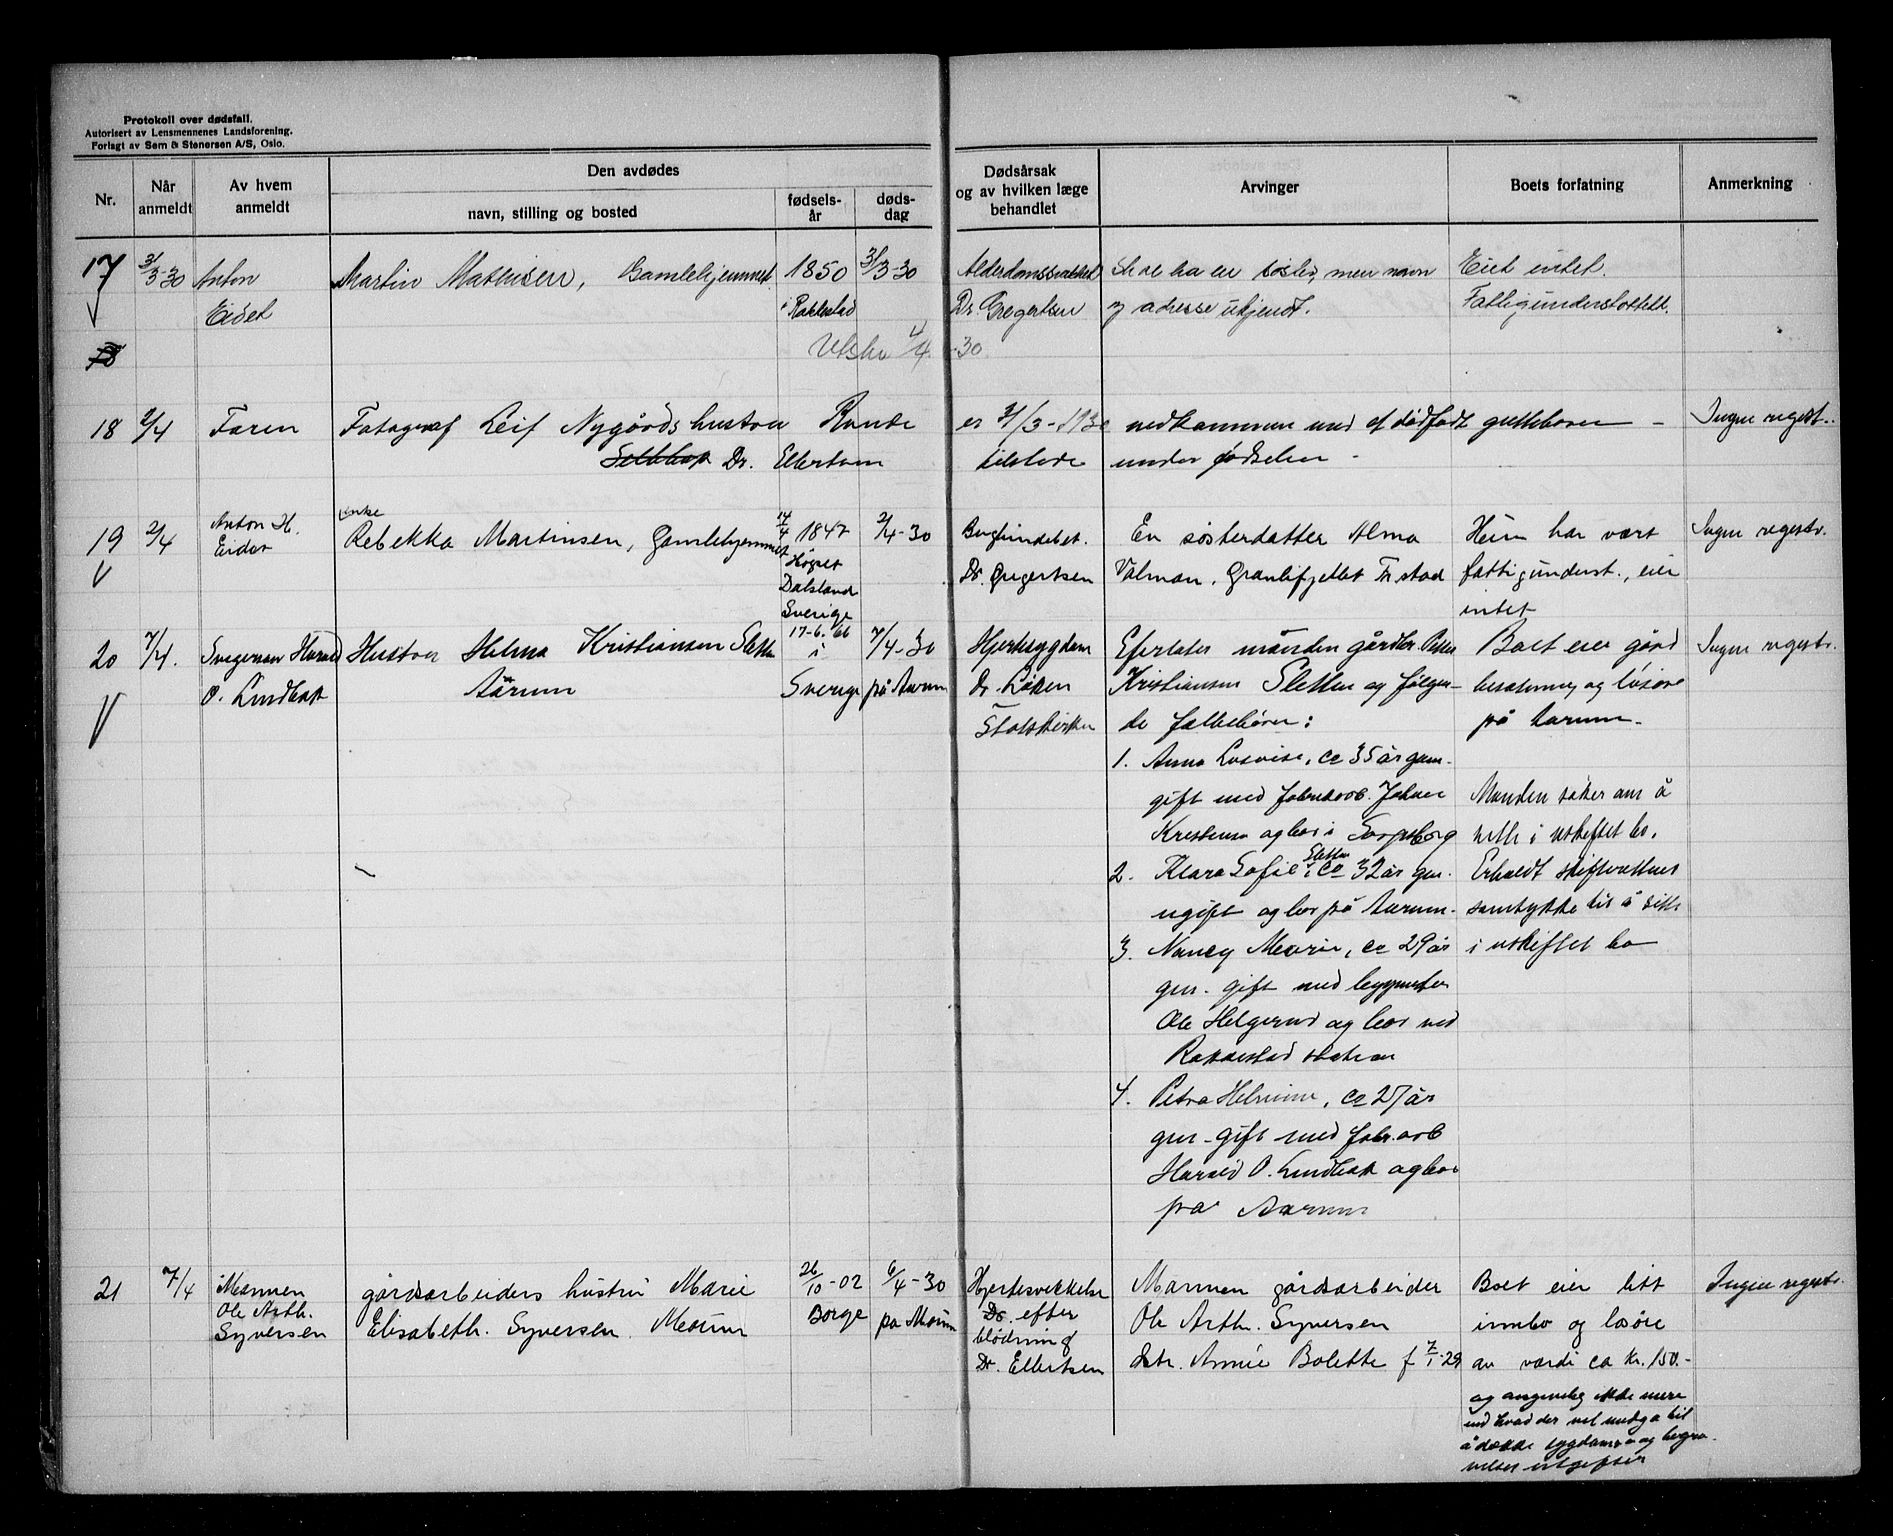 Protokoll over dødsfall.
Autorisert av Lensmennenes Landsforening.
Forlagt av Sem & Stenersen A/S, Oslo.
Nr.
Når anmeldt
Av hvem anmeldt
Den avdødes
navn, stilling og bosted
fødsels-år
døds-dag
Dødsårsak og av hvilken læge behandlet
Arvinger
Boets forfatning
Anmerkning
17 31/3-30 Anton Martin Mathisen, Gamlehjemmet 1850 31/3-30 Alderdomssvakhet Skal ha en søster, men navn Eiet intet.
Eidet i Rakkestad Dr. Gregertsen og adresse ukjendt. Fattigunderstøttet.
18 Utskr 4/4-30
18 2/4 Faren Fotograf Leif Nygårds hustru Runde er 31/3-1930 nedkommen med et dødfødt guttebarn - Ingen regest..
Dr. Ellertsen tilstede under fødselen -
19 2/4 Anton H. enke 14/4 1847 2/4-30
Eidet Rebekka Martinsen, Gamlehjemmet En søsterdatter Alma Hun har vært Ingen regestr.
Dalsland Dr. Gregertsen Valman, Granlifjellet Fr.stad fattigunderst., eier
Sverige intet
20 7/4. Svigersøn Harald Hustru Helma Kristiansen Sletten 17-6.66 7/4-30 Hjertesygdom Efterlater manden gårdbr. Petter Boet eier gård Ingen regestr.
O. Lindbak Aarum i Sverige på Aarum Dr. Løken Kristiansen Sletten og følgen- besætning og løsøre
de fællesbörn: på Aarum-
1. Anna Lovise, ca 35 år gam-
gift med fabrikarb. Johan Manden søker om å
Kristiansen og bor i Sarpsborg sitte i uskiftet bo.
2. Klara Sofie Sletten, ca 32 år gm. Erholdt skifterettens
ugift og bor på Aarum- samtykke til å sitte
3. Nancy Marie, ca 29 år i uskiftet bo
gm. gift med byggmester
Ole Helgerud og bor ved
Rakkestad station
4. Petra Helmine, ca 27 år
gm - gift med fabr.arb
Harald O. Lindbak og bor
på Aarum
21 7/4 Mannen gårdsarbeiders hustru Marie 26/10-02 6/4-30 Hjertesvekkelse Mannen gårdsarbeider Boet eier litt Ingen regestr.
Ole Arth. Elisabeth Syversen. Moum Borge på Moum Dr. efter Ole Arth. Syversen innbo og løsøre
Syversen blødning
Dr. Ellertsen Dtr. Annie Bolette f 7/1-29 av værdi ca kr. 150.-
og angivelig ikke mere
end hvad der vil medgå til
å dekke sygdoms- og begra-
velses utgifter